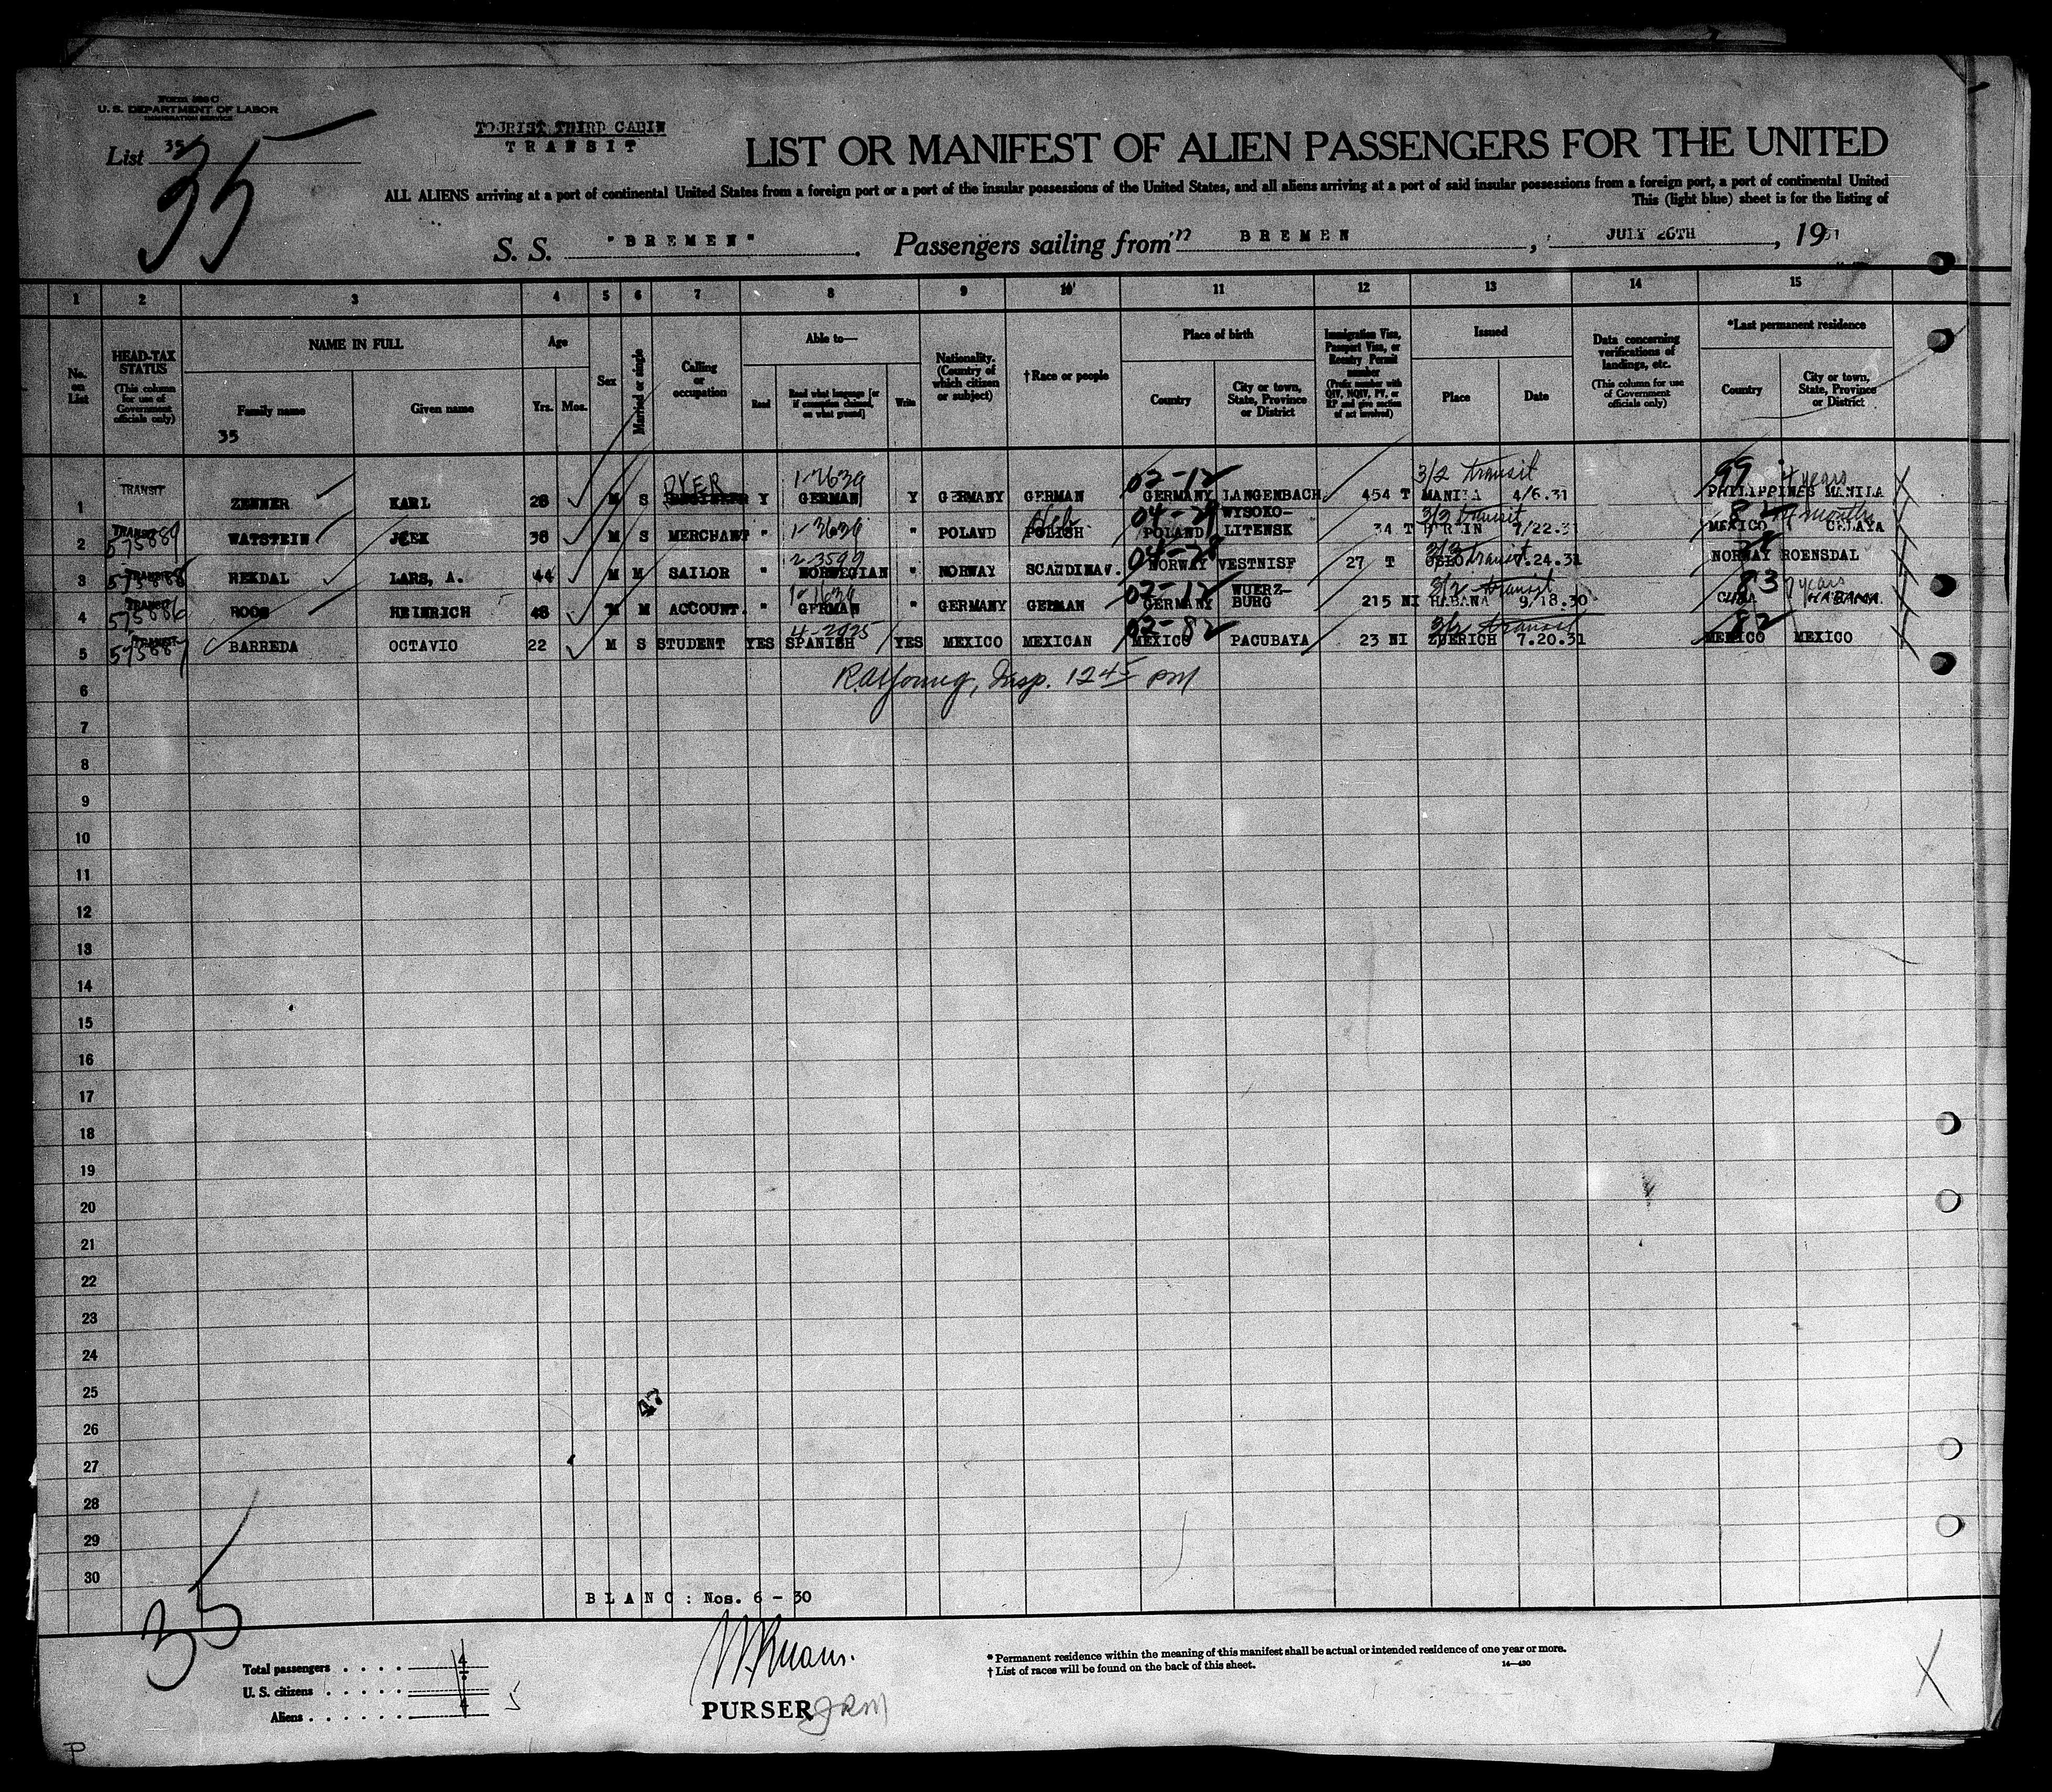 Form 500 C
U. S. DEPARTMENT OF LABOR
IMMIGRATION SERVICE
List 35
35
TOURIST THIRD CABIN
TRANSIT
LIST OR MANIFEST OF ALIEN PASSENGERS FOR THE UNITED
ALL ALIENS arriving at a port of continental United States from a foreign port or a port of the insular possessions of the United States, and all aliens arriving at a port of said insular possessions from a foreign port, a port of continental United
This (light blue) sheet is for the listing of
S. S. "BREMEN". Passengers sailing from BREMEN, JULY 26TH, 1931
1 2 3 4 5 6 7 8 9 10 11 12 13 14 15
No. on List
HEAD-TAX STATUS (This column for use of Government officials only)
NAME IN FULL
Family name
Given name
35
Age
Yrs. Mos.
Sex
Married or single
Calling or occupation
Able to—
Read
Read what language [or if exemption claimed, on what ground]
Write
Nationality. (Country of which citizen or subject)
†Race or people
Place of birth
Country
City or town, State, Province or District
Immigration Visa, Passport Visa, or Reentry Permit number (Prefix number with QIV, NQIV, PV, or RP and give section of act involved)
Issued
Place
Date
Data concerning verifications of landings, etc. (This column for use of Government officials only)
*Last permanent residence
Country
City or town, State, Province or District
DYER 1-2639 02-12 3/2 transit 99 4 years
1 TRANSIT ZENNER KARL 28 M S Y GERMAN Y GERMANY GERMAN GERMANY LANGENBACH 454 T MANILA 4/6.31 PHILIPPINES MANILA
1-3639 3/2 transit 82 months
2 TRANSIT 575889 WATSTEIN 38 M S MERCHANT " " POLAND POLISH POLAND WYSOKO-LITENSK 34 T 7/22.31 MEXICO CELAYA
2-3599 04-28
3 TRANSIT 575888 REKDAL LARS, A. 44 M M SAILOR " NORWEGIAN " NORWAY SCANDINAV. NORWAY VESTNISF 27 T OSLO transit 7.24.31 NORWAY ROENSDAL
1-1639 02-12 3/2 transit 83 years
4 TRANSIT 575886 ROOS HEINRICH 48 M M ACCOUNT. " GERMAN " GERMANY GERMAN GERMANY WUERZ-BURG 215 NI HABANA 9/18.30 CUBA HABANA
4-2025 02-82 3/2 transit 82
5 TRANSIT 575887 BARREDA OCTAVIO 22 M S STUDENT YES SPANISH YES MEXICO MEXICAN MEXICO PACUBAYA 23 NI ZUERICH 7.20.31 MEXICO MEXICO
6 Insp. 12 45 PM
7
8
9
10
11
12
13
14
15
16
17
18
19
20
21
22
23
24
25
47
26
27
28
29
30
BLANC: Nos. 6 - 30
35
Total passengers
U. S. citizens
Aliens
5
PURSER JRM
* Permanent residence within the meaning of this manifest shall be actual or intended residence of one year or more.
† List of races will be found on the back of this sheet.
14—430
P